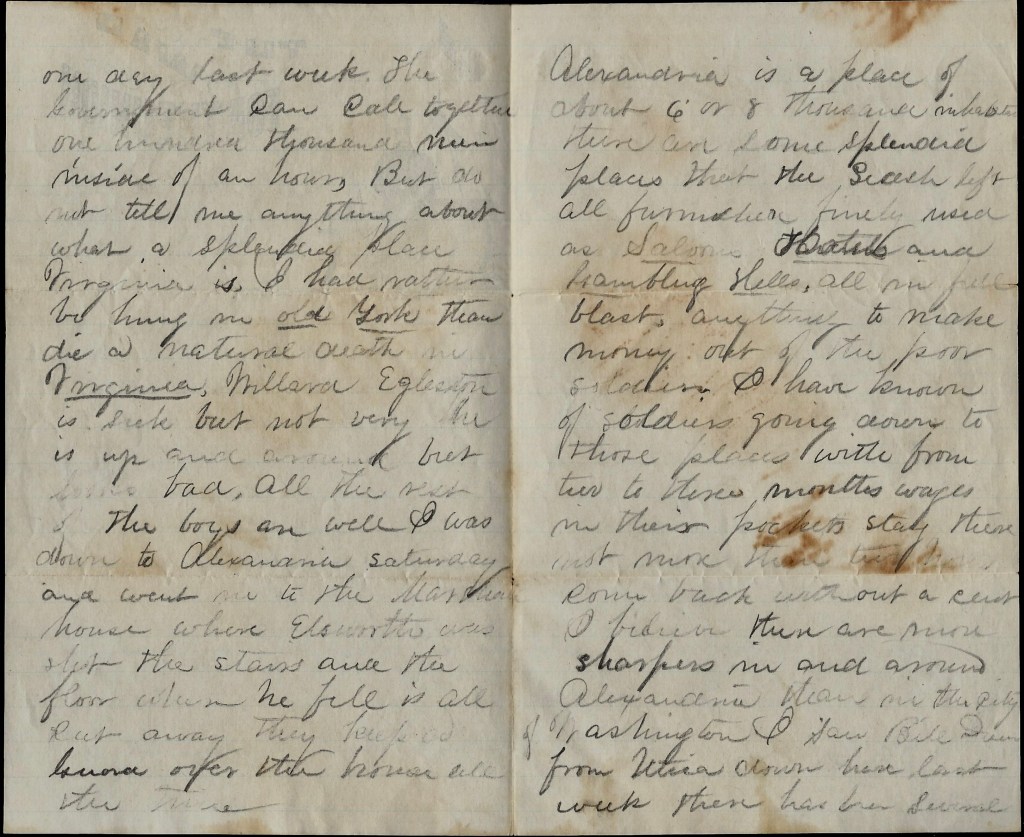 one day last week. The
Government Can Call together
one hundred thousand men
inside of an hour, But do
not tell me anything about
what a splendid place
Virginia is. I had rather
be hung in old York than
die a natural death in
Virginia. Willard Egleston
is sick but not very he
is up and around but
bad, All the rest
of the boys are well I was
down to Alexandria saturday
and went in to the Marshall
house where Elsworth was
shot the stairs and the
floor where he fell is all
Cut away they keep a
Guard over the house all
the time
Alexandria is a place of
about 6 or 8 thousand
there are some splendid
places that the Secesh left
all furnished finely used
as Saloons and
Gambling Hells, all in full
blast, anything to make
money out of the poor
soldiers I have known
of soldiers going down to
those places with from
two to three months wages
in their pockets stay there
not more than two
Come back without a cent
I believe there are more
sharpers in and around
Alexandria than in the City
of Washington I Saw Bill
from Utica down here last
week there has been several